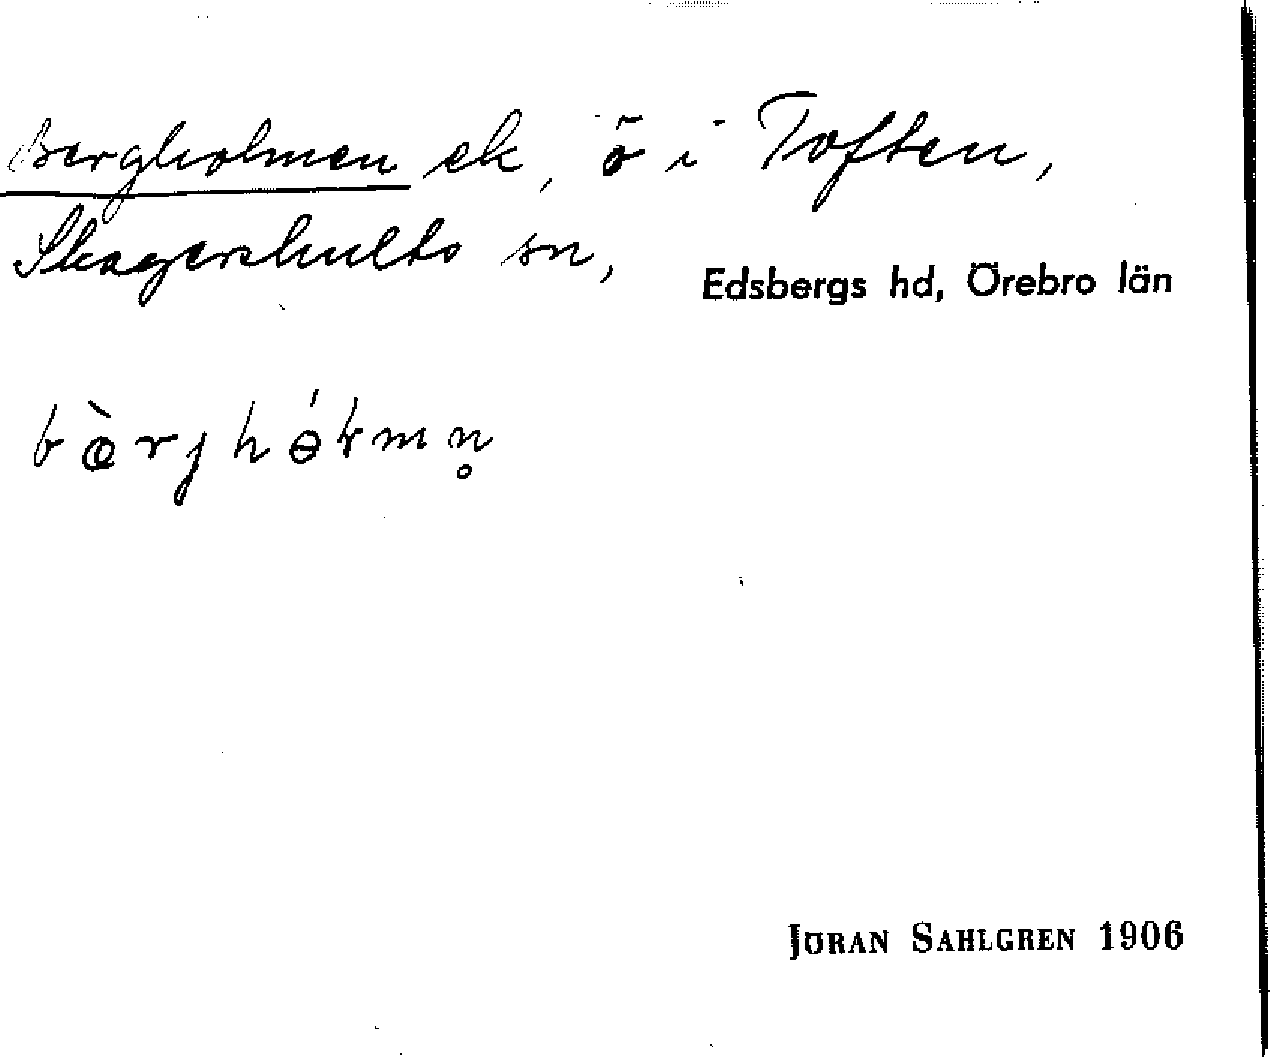 Bergholmen ek, ö i Toften,
Skagershults sn,
Edsbergs hd, Örebro län
JÖRAN SAHLGREN 1906